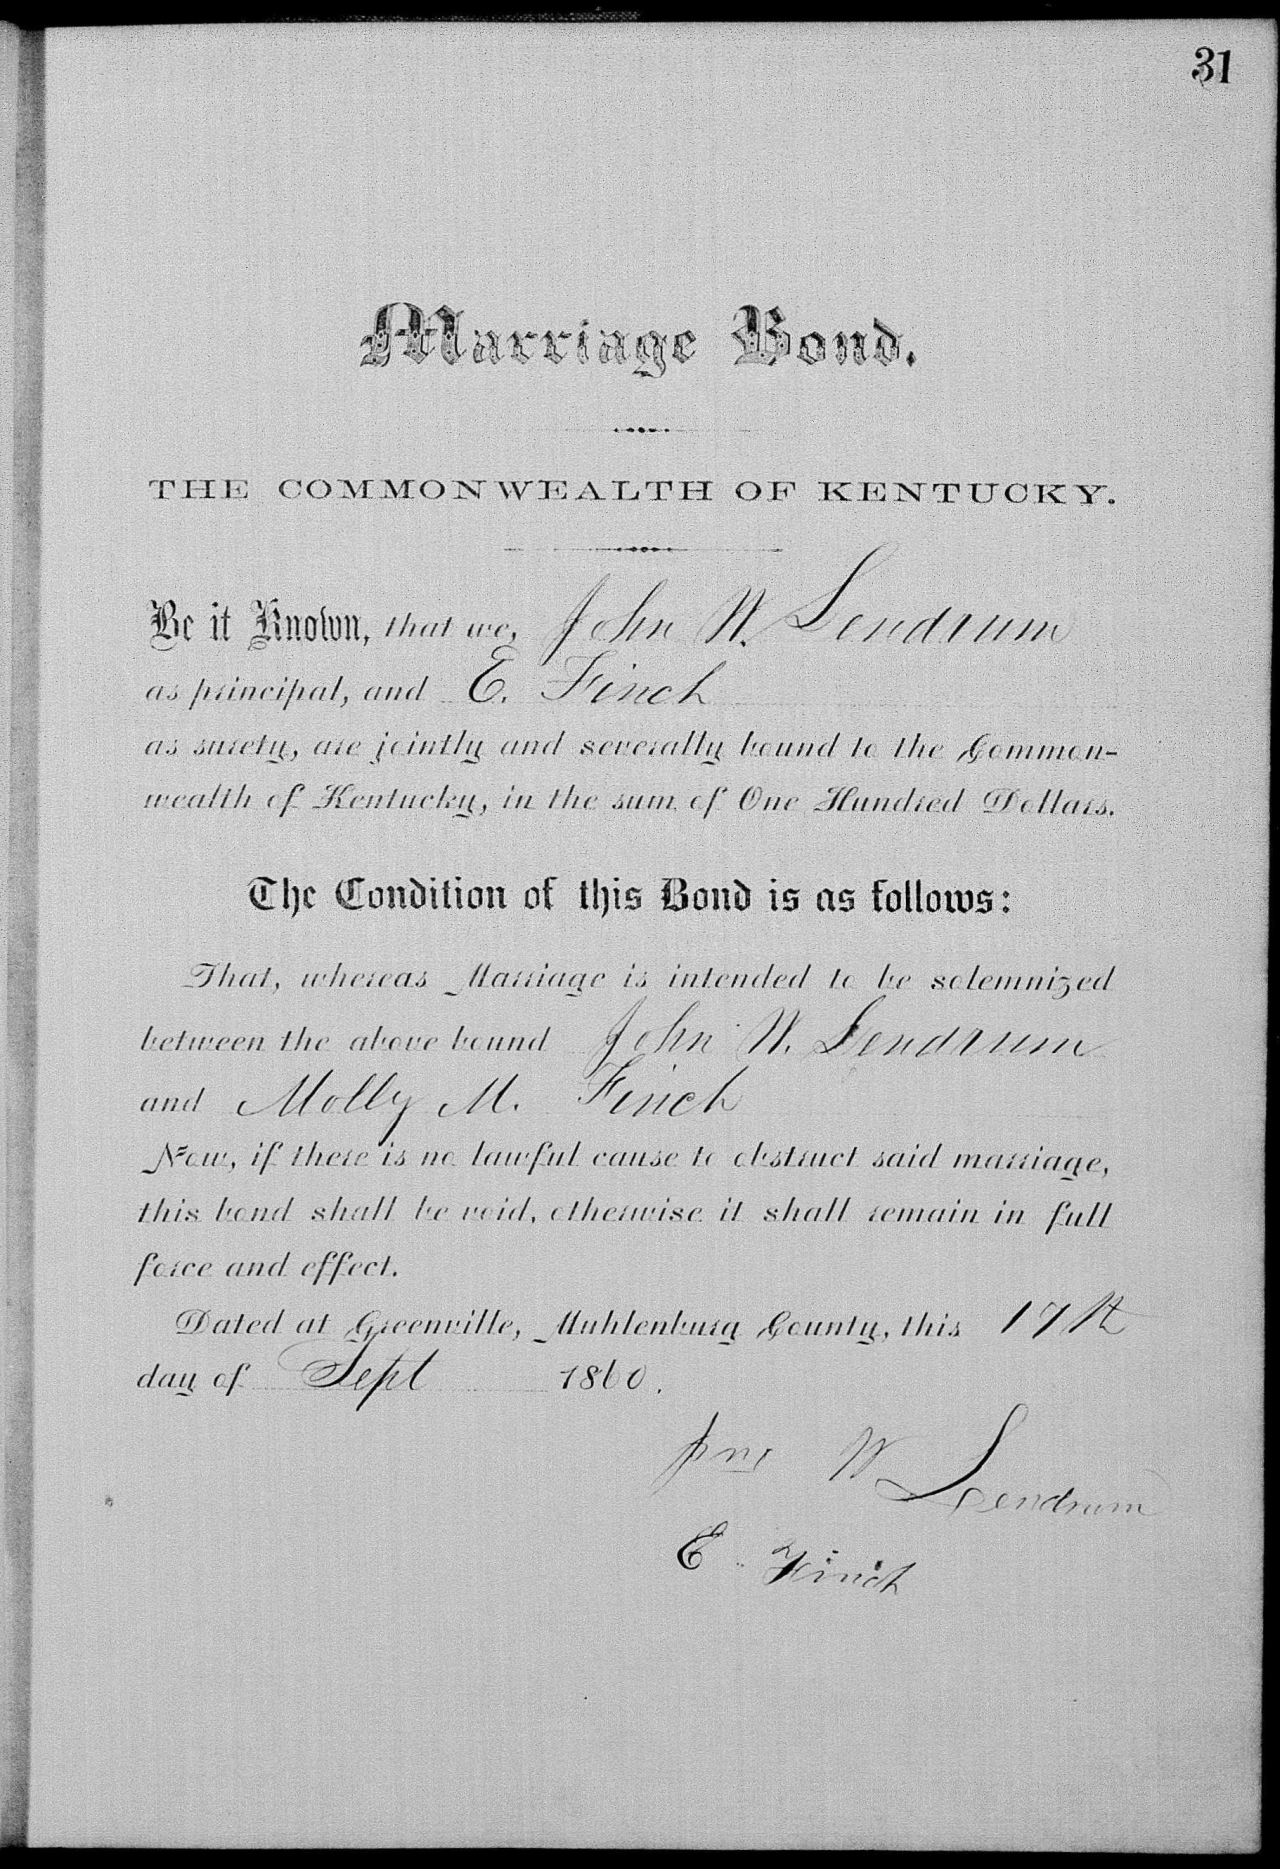 31
Marriage Bond.
THE COMMONWEALTH OF KENTUCKY.
Be it Known, that we, John W. Lendrum
as principal, and E. Finch
as surety, are jointly and severally bound to the Common-
wealth of Kentucky, in the sum of One Hundred Dollars.
The Condition of this Bond is as follows:
That, whereas Marriage is intended to be solemnized
between the above bound John W. Lendrum
and Molly M. Finch
Now, if there is no lawful cause to obstruct said marriage,
this bond shall be void, otherwise it shall remain in full
force and effect.
Dated at Greenville, Muhlenburg County, this 17th
day of Sept 1860.
Jno W Lendrum
E Finch